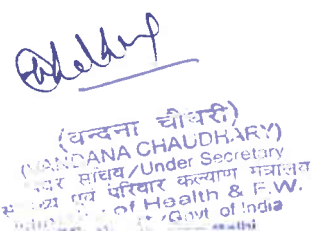 (वन्दना चौधरी)
(VANDANA CHAUDHARY)
अवर सचिव/Under Secretary
स्वास्थ्य एवं परिवार कल्याण मंत्रालय
of Health & F.W.
/Govt of India